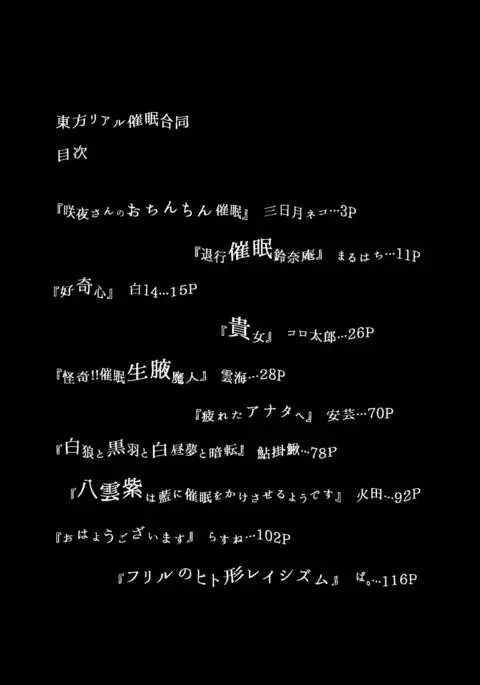 東方リアル催眠合同
目次
『咲夜さんのおちんちん催眠』 三日月ネコ…3P
『退行催眠鈴奈庵』 まるはち…11P
『好奇心』 白14…15P
『貴女』 コロ太郎…26P
『怪奇!!催眠生腋魔人』 雲海…28P
『疲れたアナタへ』 安芸…70P
『白狼と黒羽と白昼夢と暗転』 鮎掛鍬…78P
『八雲紫は藍に催眠をかけさせるようです』 火田…92P
『おはようございます』 らすね…102P
『フリルのヒト形レイシズム』 ぱ。…116P